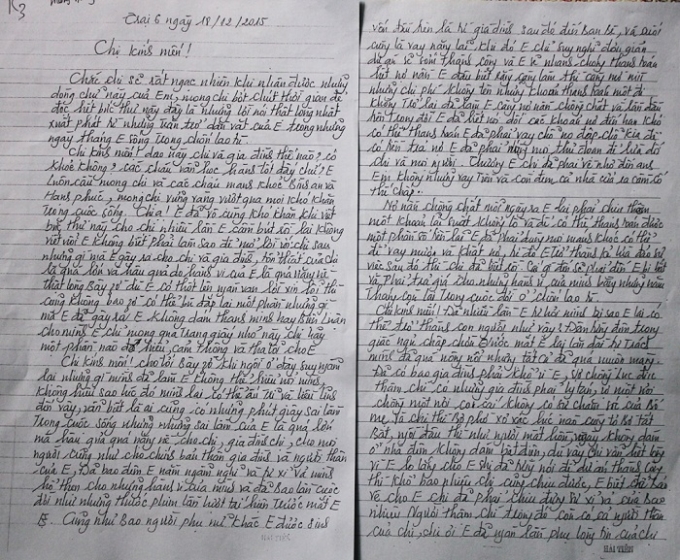 Trại 6 ngày 18/12/2015
Chị kính mến!
Chắc chị sẽ rất ngạc nhiên khi nhận được những
dòng chữ này của Em, mong chị bớt chút thời gian để
đọc hết bức thư này đây là những lời nói thật lòng nhất
xuất phát từ những trăn trở dằn vặt của E trong những
ngày tháng E sống trong chốn lao tù.
Chị kính mến! dạo này chị và gia đình thế nào? có
khoẻ không? các cháu vẫn học hành tốt đấy chứ? E
luôn cầu mong chị và các cháu mạnh khoẻ Bình an và
Hạnh phúc, mong chị vững vàng vượt qua mọi khó khăn
trong cuộc sống. Chị ạ! E đã vô cùng khó khăn khi viết
bức thư này cho chị nhiều lần E cầm bút rồi lại không
viết nổi E không biết phải làm sao để nói lời với chị sau
những gì mà E gây ra cho chị và gia đình, tổn thất của chị
là quá lớn và hậu quả do hành vi của E là quá nặng nề
thật lòng Bây giờ dù E có thốt lên ngàn vạn lời xin lỗi thì
cũng không bao giờ có thể bù đắp lại một phần những gì
mà E đã gây ra E không dám thanh minh hay biện luận
cho mình E chỉ mong qua trang giấy nhỏ này chị hãy
một phần nào đó hiểu, cảm thông và tha lỗi cho E
Chị kính mến! cho tới Bây giờ khi ngồi ở đây suy ngẫm
lại những gì mình đã làm E không thể hiểu nổi mình
không hiểu sao lúc đó mình lại có thể
đến vậy, vẫn biết là ai cũng có những phút giây sai lầm
trong cuộc sống nhưng những sai lầm của E là quá lớn
mà hậu quả quá nặng nề cho chị, gia đình chị, cho mọi
người cũng như cho chính bản thân gia đình và người thân
của E, Đã bao đêm E nằm ngẫm nghĩ và tự xỉ vả mình
hổ thẹn cho những hành vi của mình và đã Bao lần cuộc
đời như những thước phim lần lượt tái hiện trước mắt E
Cũng như Bao người phụ nữ khác E được sinh
sau đó đến Ban bè, và cuối
cùng là vay nặng lãi khi đó E chỉ suy nghĩ đơn giản
dự án sẽ sớm thành công và E sẽ nhanh chóng thanh toán
hết nợ nần E đâu biết rằng càng làm thì càng
những chi phí không tên những khoản thanh toán một đi
không trở lại đã làm E càng nợ nần chồng chất và lần dần
hòn trong đời E đã hết nợ đời các khoản nợ đến hạn khó
có thể thanh toán E đã phải vay chỗ nọ đắp chỗ kia để
có tiền trả nợ E đã phải dùng mọi thủ đoạn để lừa dối
chị và mọi người. Thương E chị đã phải vì nhờ đến anh
Em không những vay tiền và còn đem cả nhà cửa ra cầm cố
thế chấp.
Nợ nần chồng chất mỗi ngày ra E lại phải chịu thêm
một khoản lãi suất khổng lồ và để có thể thanh toán được
một phần số tiền lãi E đã phải dùng mọi mánh khoé có thể
để vay mượn và khất nợ, từ đó E trở thành kẻ lừa đảo
việc sau đó thì chị đã biết rồi. Cái gì đến sẽ phải đến E bị bắt
và phải trả giá cho những hành vi của mình bằng những năm
tháng còn lại trong cuộc đời ở chốn lao tù.
Chị kính mến! Đã nhiều lần E tự hỏi mình vì sao E lại có
thể trở thành con người như vậy! Đêm từng đêm trong
giấc ngủ chập chờn nước mắt E lại lăn dài tự trách
mình đã quá nông nổi nhưng tất cả đã quá muộn màng
Đã có bao gia đình phải khổ vì E, vợ chồng lục đục
thậm chí có những gia đình phải ly tan, vợ một nơi
chồng một nơi con cái không có sự chăm sóc của Bố
mẹ và chị thì Bỏ phố xó việc lúc nào cũng lo Bị tất
Bật, nơi đâu thì như người mất hồn, ngay không dám
ở nhà đêm không dám bật đèn, dù vậy chị vẫn hết lòng
vì E lo lắng cho E khi đó hãy nói để dự án thành công
thì khổ bao nhiêu chị cũng chịu được, E biết chỉ bảo
vệ cho E chị đã phải chịu đựng sự xỉ vả của Bao
nhiêu người thậm chí trong đó còn có cả người thân
của chị, chị ơi E đã ngàn lần phụ lòng tin của chị
HẢI TIẾN
HẢI TIẾN